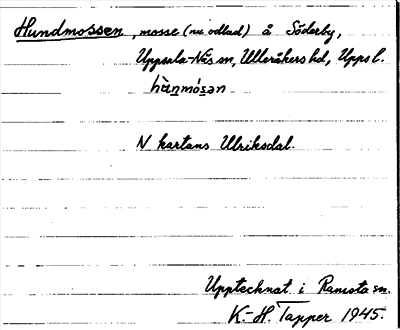 Hundmossen, mosse (nu odlad) å Söderby,
Uppsala-Näs sn, Ulleråkers hd, Upps l.
N kartans Ulriksdal.
Upptecknat i Ramsta sn.
K.-H. Tapper 1945.